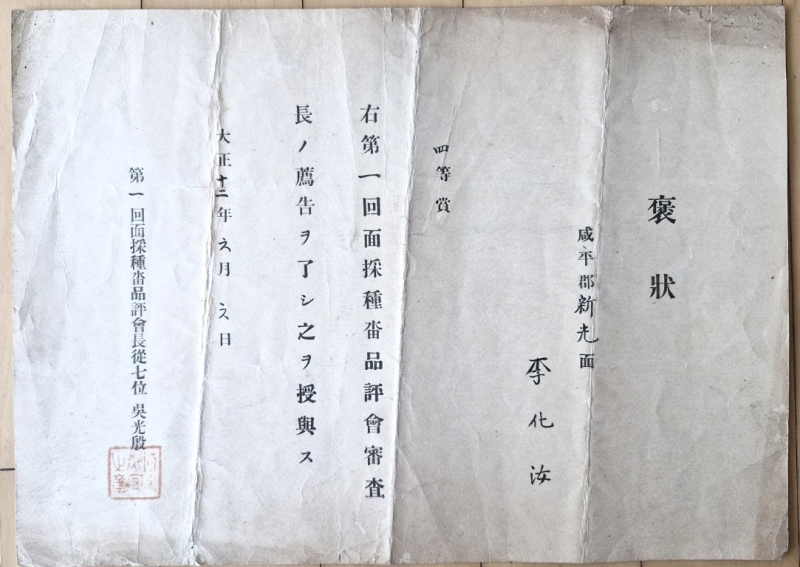 褒狀
咸平郡新光面
李化汝
四等賞
右第一回面採種畓品評會審査
長ノ薦告ヲ了シ之ヲ授與ス
大正十二年六月六日
第一回面採種畓品評會長從七位 吳光殷